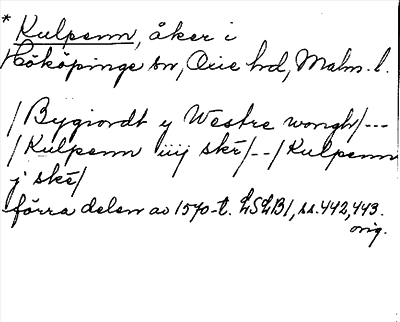 * Kulpenn, åker i
Hököpinge sn, Oxie hd, Malm. l.
/Bygiordt y Westre wongh/---
/Kulpenn iiij ske/--/Kulpenn
j ske/
förra delen av 1570-t. LSLB1, ss. 442, 443.
orig.